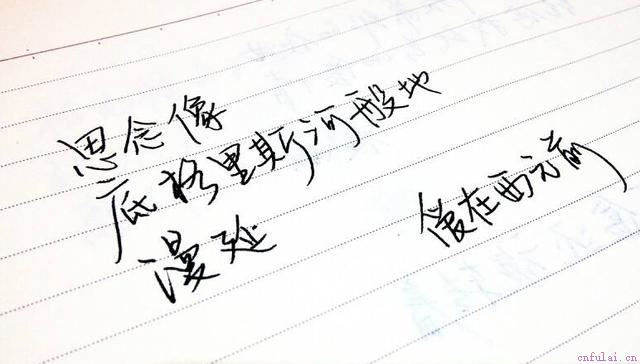 思念像
底格里斯河般地
漫延
爱在西元前
cnfulai.cn